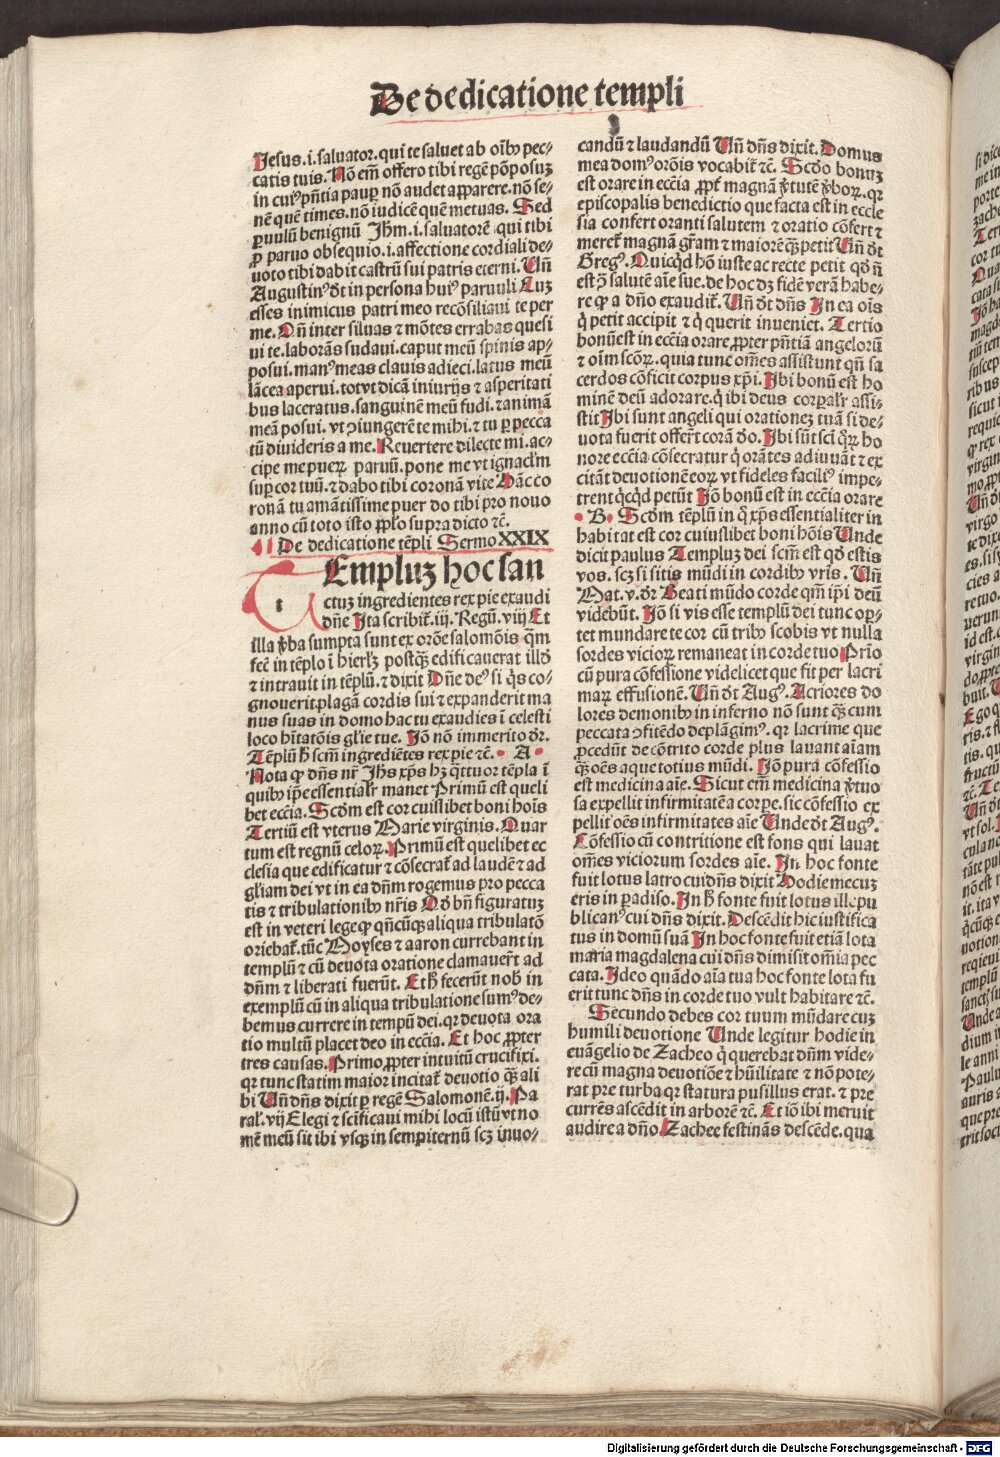 De dedicatione templi
Jesus .i. saluator. qui te saluet ab oĩbꝰ pec⸗
catis tuis. Nõ em̃ offero tibi regẽ põposuz
in cuiꝰ pñtia paup nõ audet apparere. nõ se⸗
nẽ quẽ times. nõ iudicẽ quẽ metuas. Sed
puulũ benignũ Jhm̃ .i. saluatorẽ qui tibi
p paruo obsequio .i. affectione cordiali de⸗
uoto tibi dabit castrũ sui patris eterni. Uñ
Augustinꝰ dt̃ in persona huiꝰ paruuli Cuz
esses inimicus patri meo recõsiliaui te per
me. Oñ inter siluas ⁊ mõtes errabas quesi
ui te. laborãs sudaui. caput meũ spinis ap⸗
posui. manꝰ meas clauis adieci. latus meũ
lãcea aperui. tot vt dicã iniurijs ⁊ asperitati
bus laceratus. sanguinẽ meũ fudi. ⁊ animã
meã posui. vt ↄiungerẽ te mihi. ⁊ tu p pecca
tũ diuideris a me. Reuertere dilecte mi. ac⸗
cipe me pueꝝ paruũ. pone me vt signacl̃m
sup cor tuũ. ⁊ dabo tibi coronã vite Hãc co
ronã tu amãtissime puer do tibi pro nouo
anno cũ toto isto pplo supra dicto ⁊c̃.
De dedicatione tẽpli Sermo XXIX
t Empluz hoc san
ctuz ingredientes rex pie exaudi
dñe Ita scribit̃. iij. Regũ. viij Et
illa ꝟba sumpta sunt ex orõe salomõis qm̃
fec̃ in tẽplo ĩ hierlz̃ postqꝫ edificauerat illd̃
⁊ intrauit in tẽplũ. ⁊ dixit Dñe deꝰ si q̃s co⸗
gnouerit plagã cordis sui ⁊ expanderit ma
nus suas in domo hac tu exaudies ĩ celesti
loco hĩtatõis gl̃ie tue. Jõ nõ immerito dr̃.
Tẽplũ h̃ scm̃ ingrediẽtes rex pie ⁊c̃. A
Nota qꝫ dñs nr̃ Jhs xp̃s hꝫ q̃ttuor tẽpla ĩ
quibꝰ ip̃e essentialr̃ manet Primũ est queli
bet ecc̃ia. Scd̃m est cor cuiuslibet boni hoĩs
Tertiũ est vterus Marie virginis. Quar
tum est regnũ celoꝝ. Primũ est quelibet ec
clesia que edificatur ⁊ cõsecrat̃ ad laudẽ ⁊ ad
gl̃iam dei vt in ea dñm rogemus pro pecca
tis ⁊ tribulationibꝰ nr̃is Qd̃ bñ figuratuz
est in veteri lege qꝫ qñcũqꝫ aliqua tribulatõ
oriebat̃. tũc Moyses ⁊ aaron currebant in
templũ ⁊ cũ deuota oratione clamauer̃t ad
dñm ⁊ liberati fuerũt. Et h̃ fecerũt nob̃ in
exemplũ cũ in aliqua tribulatione sumꝰ de⸗
bemus currere in tempũ dei. qꝛ deuota ora
tio multũ placet deo in ecc̃ia. Et hoc ppter
tres causas. Primo ppter intuitũ crucifixi.
qꝛ tunc statim maior incitat̃ deuotio qꝫ ali
bi Uñ dñs dixit p regẽ Salomonẽ. ij. Pa
ral̃. vij Elegi ⁊ scĩficaui mihi locũ istũ vt no
mẽ meũ sit ibi vsqꝫ in sempiternũ scꝫ inuo⸗
candũ ⁊ laudandũ Uñ dñs dixit. Domus
mea domꝰ orõis vocabit̃ ⁊c̃. Scd̃o bonuz
est orare in ecc̃ia ppt̃ magnã ꝟtutẽ ꝟboꝝ. qꝛ
episcopalis benedictio que facta est in eccle
sia confert oranti salutem ⁊ oratio cõfert ⁊
meret̃ magnã gr̃am ⁊ maiorẽ qꝫ petit Uñ dt̃
Gregꝰ. Quicq̃d hõ iuste ac recte petit qd̃ ñ
est ↄ̃ salutẽ aĩe sue. de hoc dꝫ fidẽ verã habe⸗
re qꝫ a dño exaudit̃. Uñ dt̃ dñs In ea oĩs
q̃ petit accipit ⁊ q̃ querit inueniet. Tertio
bonũ est in ecc̃ia orare ppter pñtiã angelorũ
⁊ oĩm scõꝝ. quia tunc om̃es assistunt qñ sa
cerdos cõficit corpus xp̃i. Ibi bonũ est ho
minẽ deũ adorare. q̃ ibi deus corpalr̃ assi⸗
stit Ibi sunt angeli qui orationez tuã si de⸗
uota fuerit offer̃t corã dõ. Ibi sũt sct̃i q̃ꝝ ho
nore ecc̃ia cõsecratur q̃ orãtes adiuuãt ⁊ ex
citãt deuotionẽ eoꝝ vt fideles faciliꝰ impe⸗
trent q̃cq̃d petũt Jõ bonũ est in ecc̃ia orare
B. Scd̃m tẽplũ in q̃ xp̃s essentialiter in
habitat est cor cuiuslibet boni hõis Unde
dicit paulus Templuz dei scm̃ est qd̃ estis
vos. scꝫ si sitis mũdi in cordibꝰ vr̃is. Uñ
Mat. v. dr̃ Beati mũdo corde qm̃ ip̃i deũ
videbũt. Jõ si vis esse templũ dei tunc op⸗
tet mundare te cor cũ tribꝰ scobis vt nulla
sordes vicioꝝ remaneat in corde tuo Prĩo
cũ pura cõfessione videlicet que fit per lacri
maꝝ effusionẽ. Uñ dt̃ Augꝰ. Acriores do
lores demonibꝰ in inferno nõ sunt qꝫ cum
peccata ↄfitẽdo deplãgimꝰ. qꝛ lacrime que
pcedũt de cõtrito corde plus lauant aĩam
qꝫ oẽs aque totius mũdi. Jõ pura cõfessio
est medicina aĩe. Sicut em̃ medicina ꝟtuo
sa expellit infirmitatẽ a corpe. sic cõfessio ex
pellit oẽs infirmitates aĩe Unde dt̃ Augꝰ.
Cõfessio cũ contritione est fons qui lauat
om̃es viciorum sordes aĩe. In hoc fonte
fuit lotus latro cui dñs dixit Hodie mecuz
eris in padiso. In h̃ fonte fuit lotus ille pu
blicanꝰ cui dñs dixit. Descẽdit hic iustifica
tus in domũ suã In hoc fonte fuit etiã lota
maria magdalena cui dñs dimisit om̃ia pec
cata. Ideo quãdo aĩa tua hoc fonte lota fu
erit tunc dñs in corde tuo vult habitare ⁊c̃.
Secundo debes cor tuum mũdare cuz
humili deuotione Unde legitur hodie in
euãgelio de Zacheo q̃ querebat dñm vide⸗
re cũ magna deuotiõe ⁊ hũilitate ⁊ nõ pote⸗
rat pre turba qꝛ statura pusillus erat. ⁊ pre
currẽs ascẽdit in arborẽ ⁊c̃. Et iõ ibi meruit
audire a dño Zachee festinãs descẽde. qua
Digitalisierung gefördert durch die Deutsche Forschungsgemeinschaft - DFG